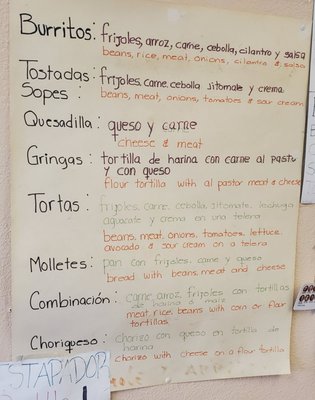 Burritos: frijoles, arroz, carne, cebolla, cilantro y salsa
beans, rice, meat, onions, cilantro & salsa
Tostadas: frijoles, carne, cebolla jitomate y crema
Sopes: beans, meat, onions, tomatoes & sour cream
Quesadilla: queso y carne
cheese & meat
Gringas: tortilla de harina con carne al pastor
y con queso
flour tortilla with al pastor meat & cheese
Tortas: frijoles, carne, cebolla, jitomate, lechuga
aguacate y crema en una telera
beans, meat, onions, tomatoes, lettuce,
avocado & sour cream on a telera
Molletes: pan con frijoles, carne y queso
bread with beans, meat and cheese
Combinación: carne, arroz, frijoles con tortillas
de harina o maiz
meat, rice, beans with corn or flour
tortillas
Choriqueso: chorizo con queso en tortilla de
harina
chorizo with cheese on a flour tortilla
ESTAPADOR